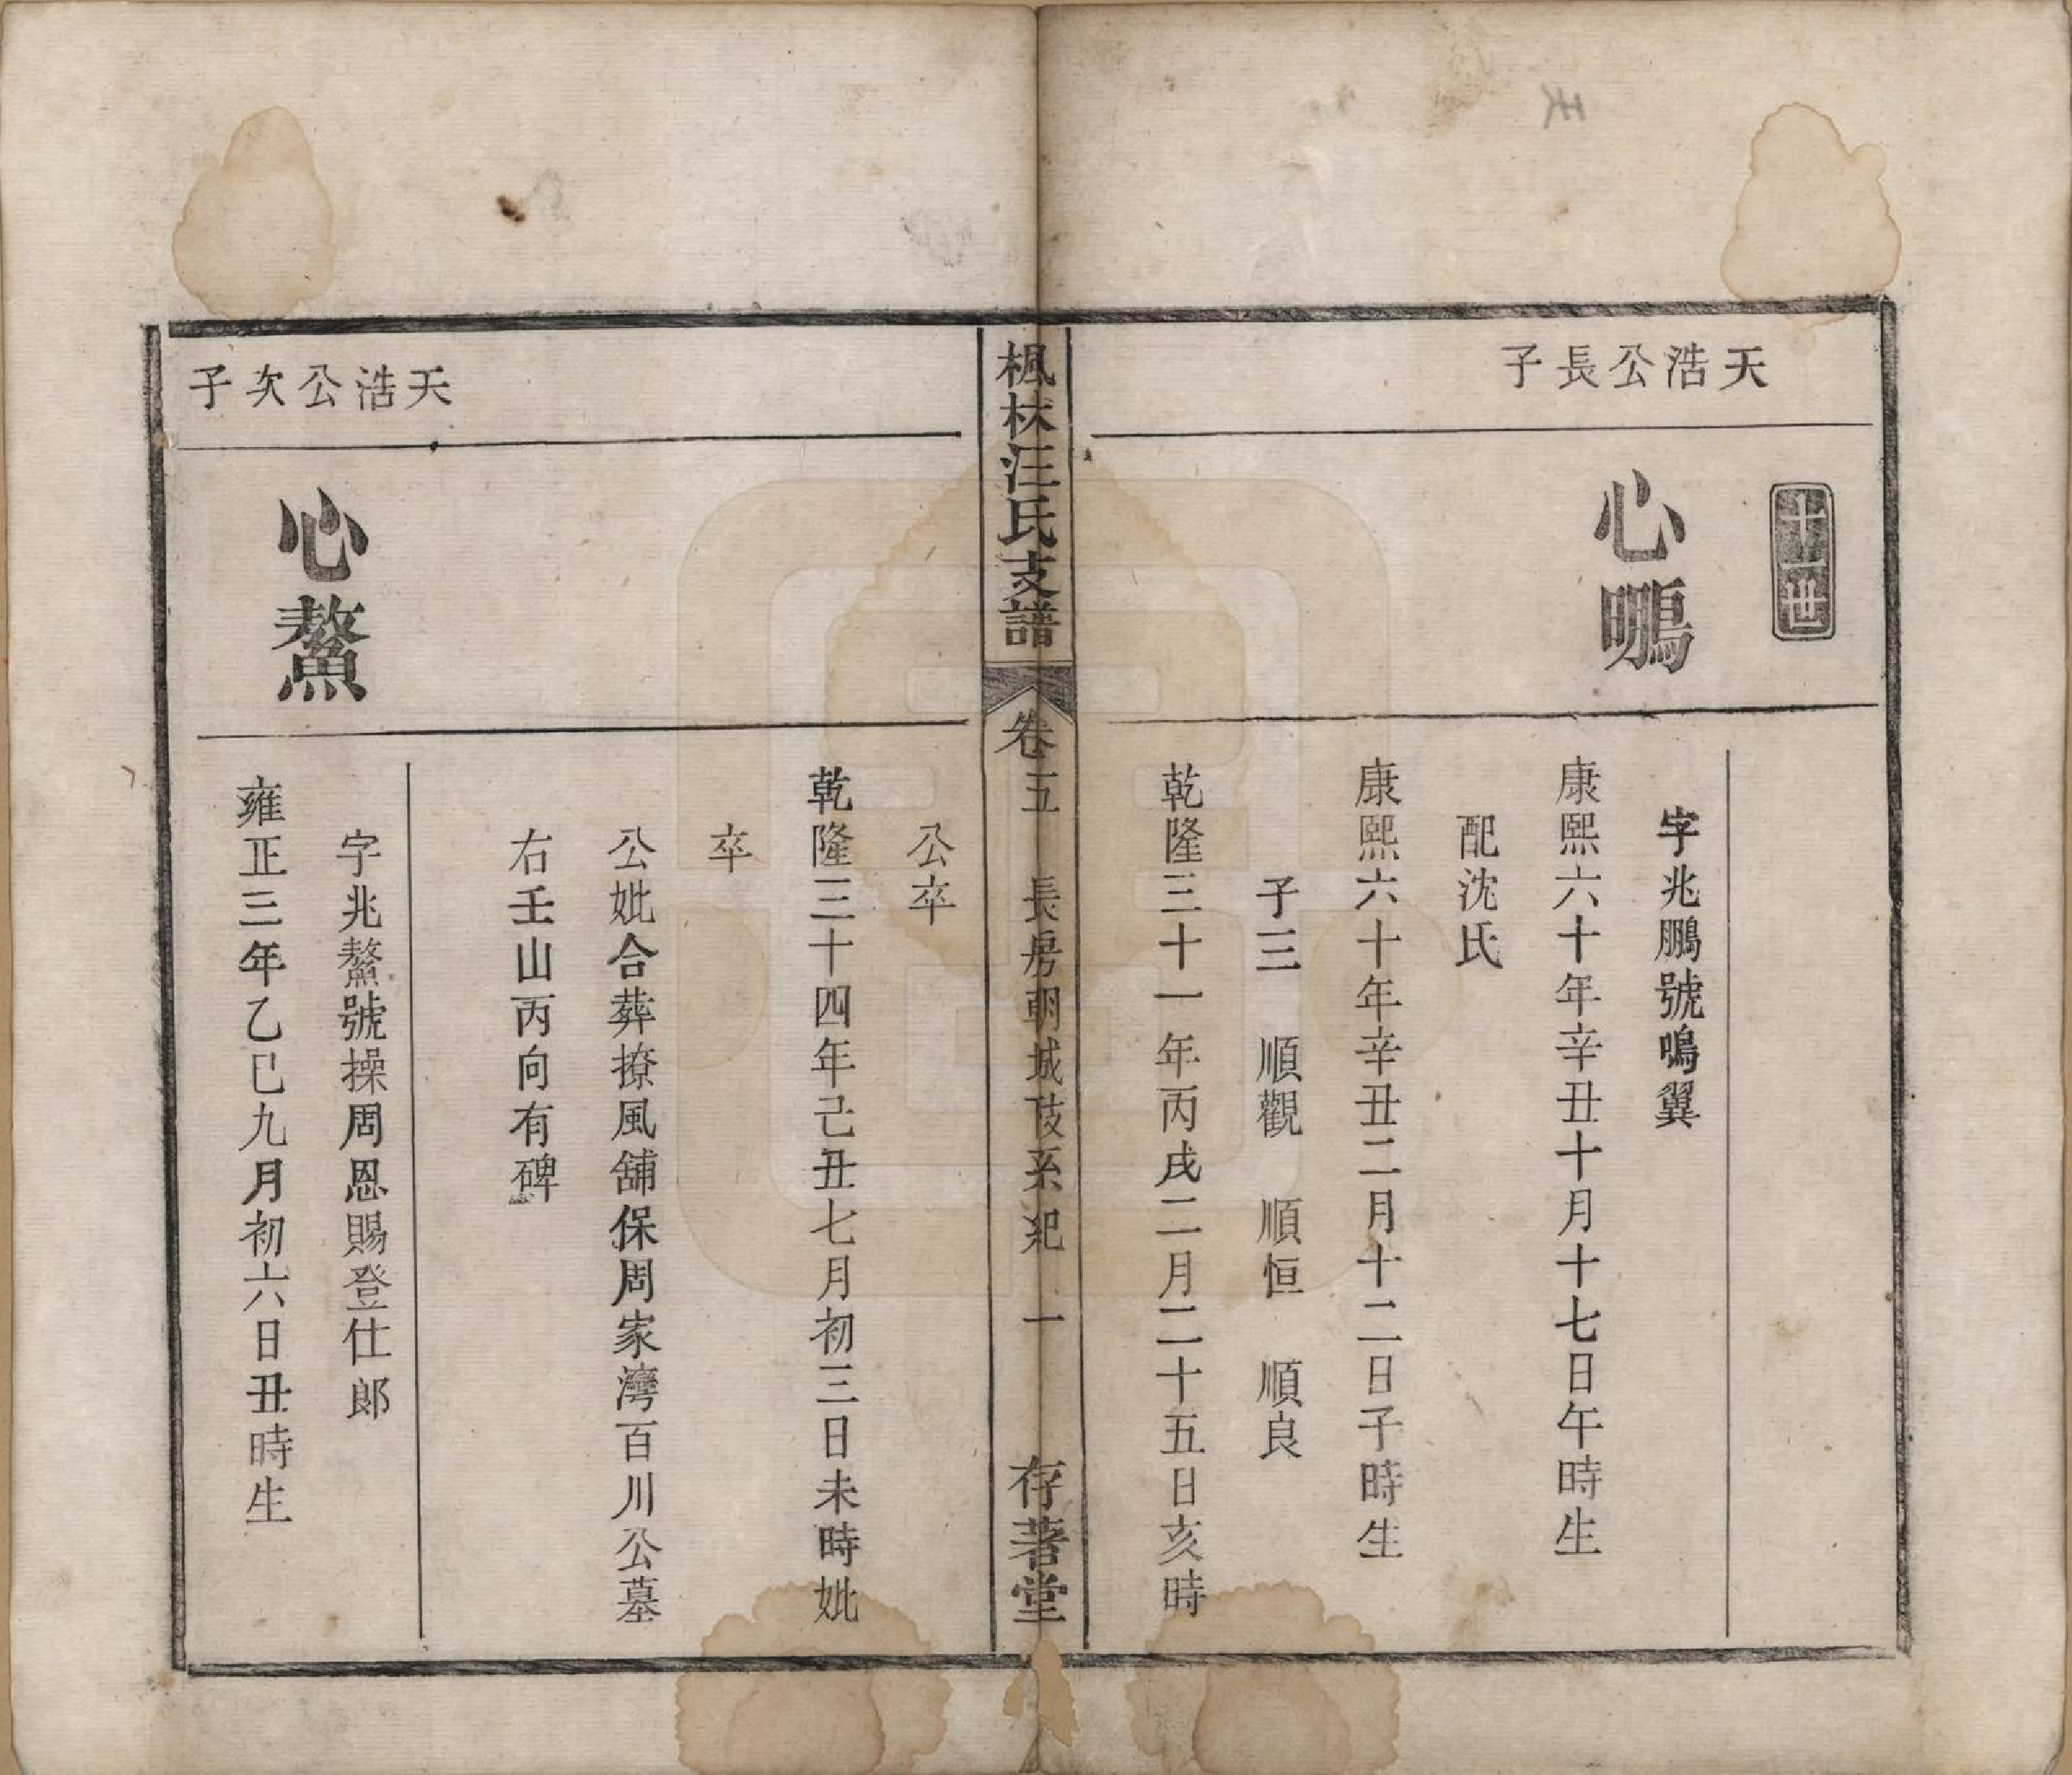 天浩公長子
十一世
心鵬
字兆鵬號鳴翼
康熙六十年辛丑十月十七日午時生
配沈氏
康熙六十年辛丑二月十二日子時生
子三　順觀　順恒　順良
乾隆三十一年丙戌二月二十五日亥時
楓林汪氏支譜
卷五　長房朝城
系紀　一
存著堂
公卒
乾隆三十四年己丑七月初三日未時妣
卒
公妣合葬撩風舖保周家灣百川公墓
右壬山丙向有碑
天浩公次子
心鰲
字兆鰲號操周恩賜登仕郎
雍正三年乙巳九月初六日丑時生